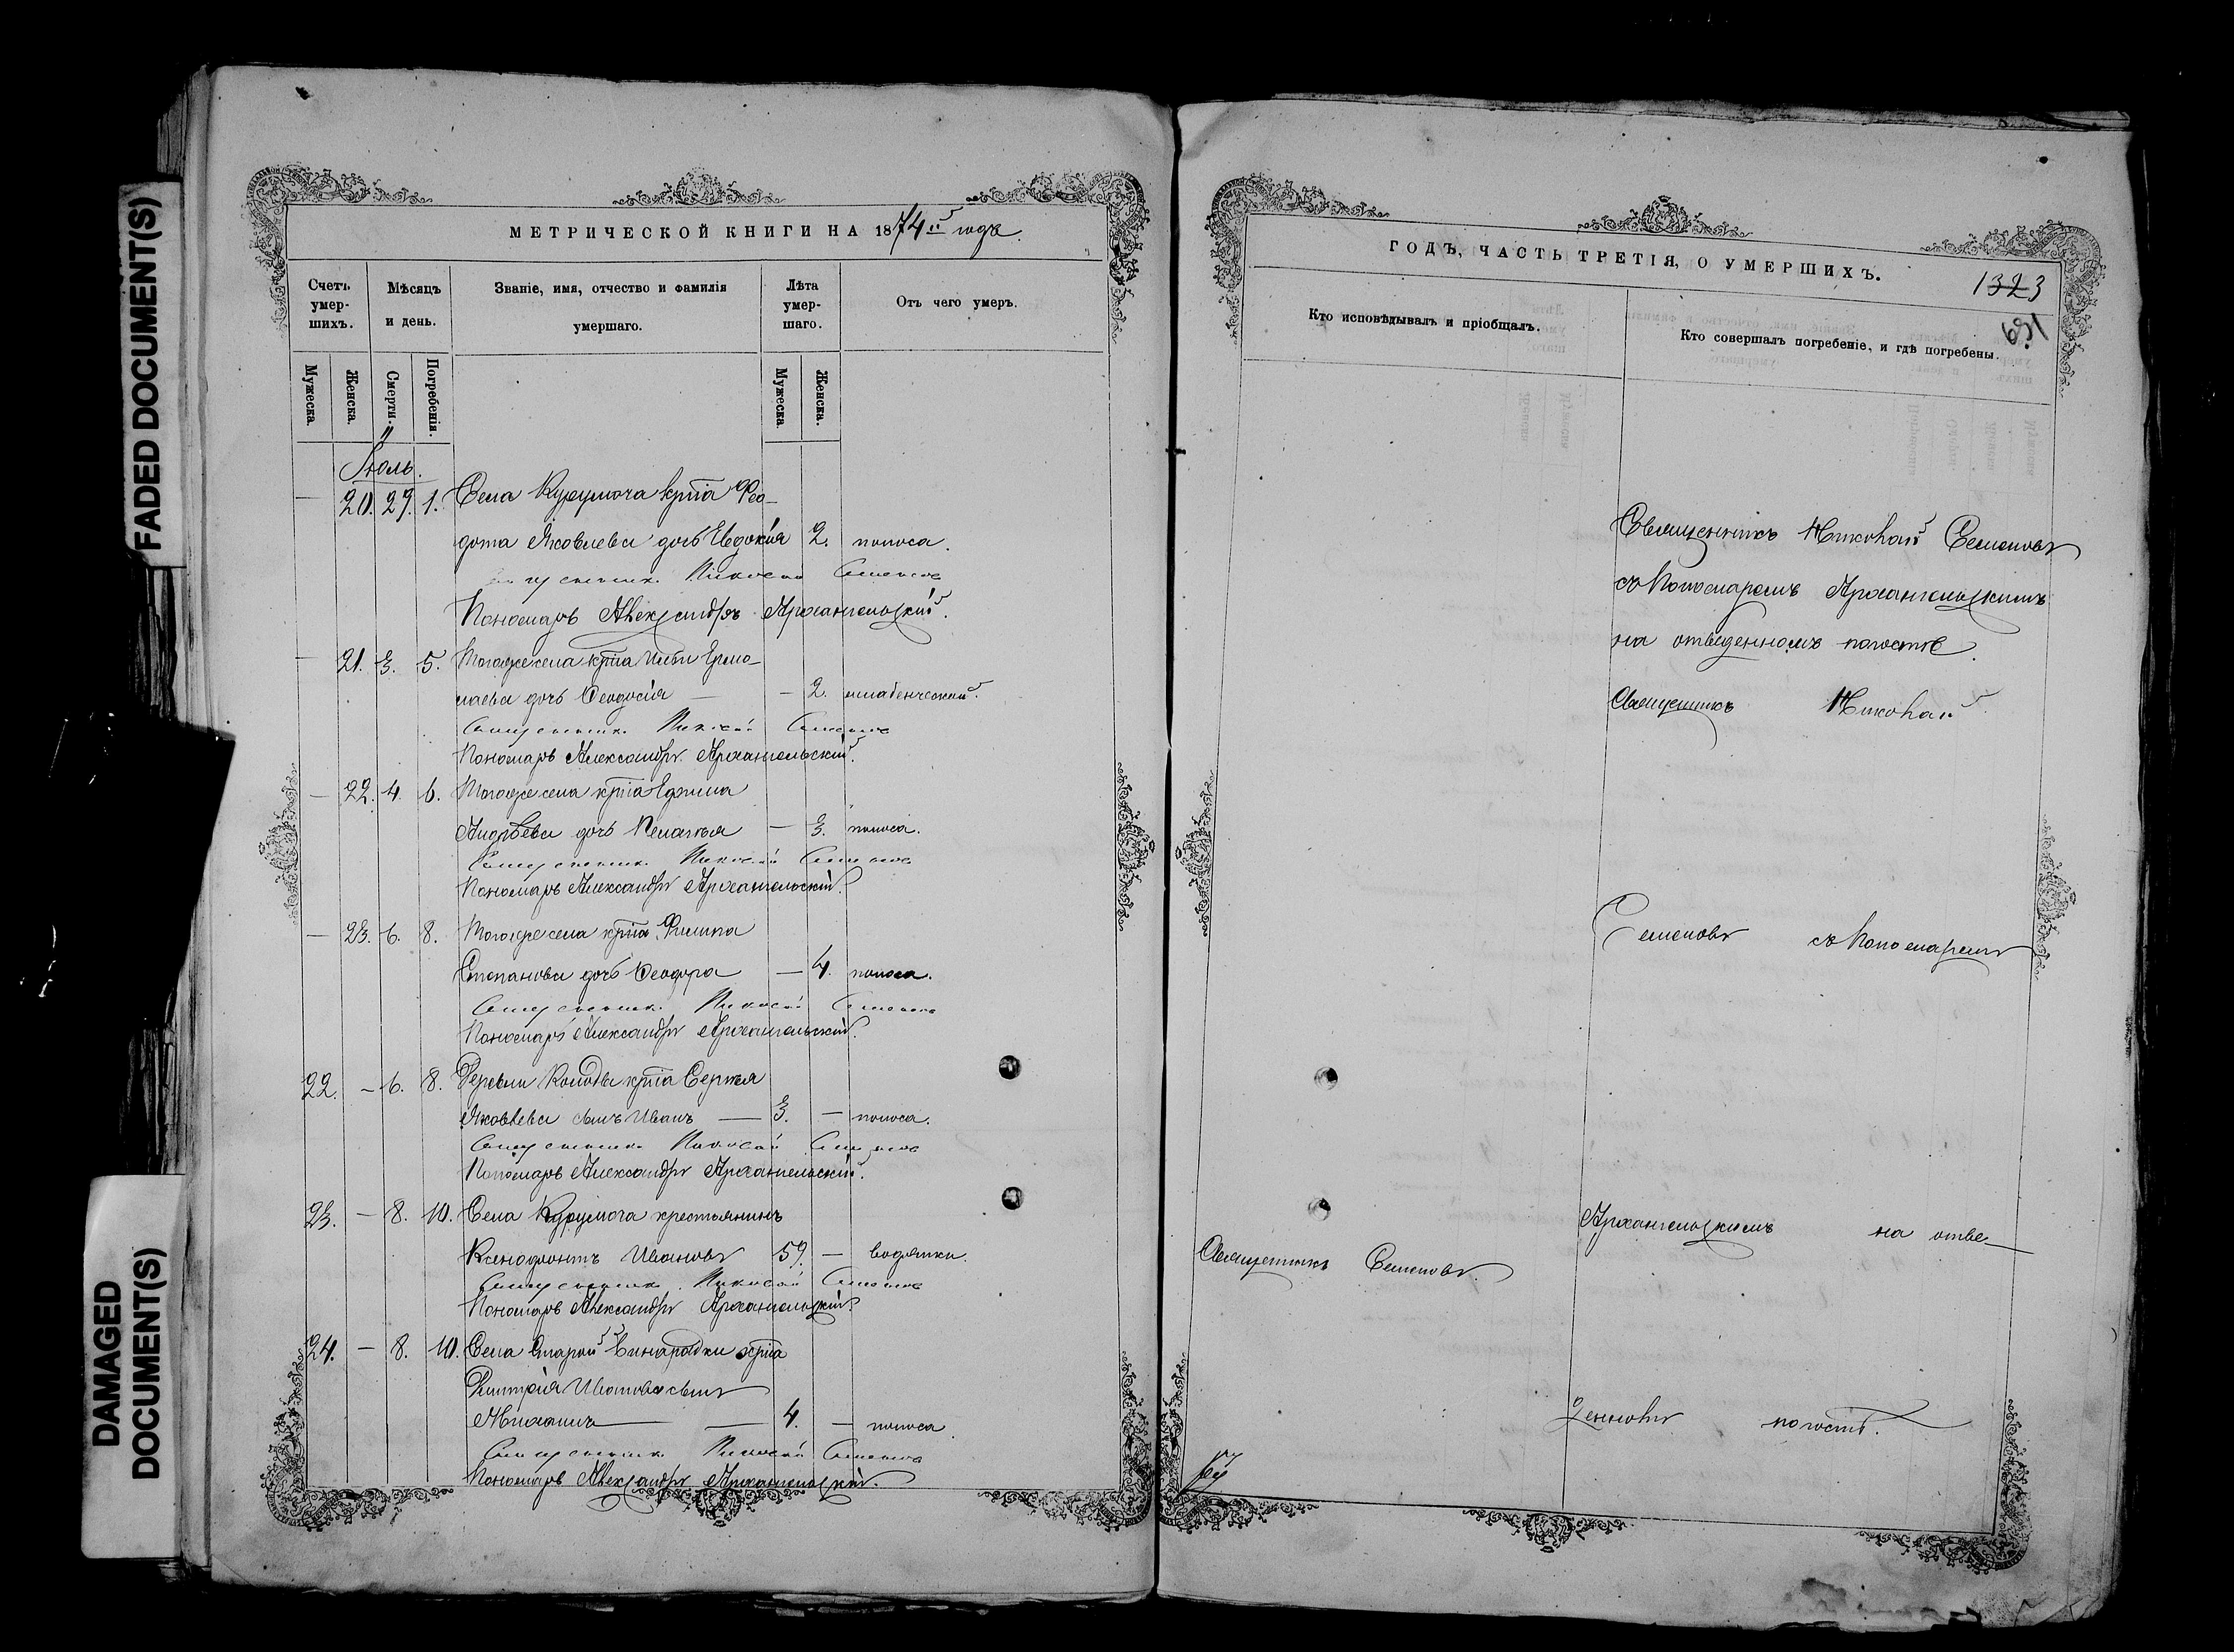 FADED DOCUMENT(S)
DAMAGED
DOCUMENT(S)
МЕТРИЧЕСКОЙ КНИГИ НА 1874й годъ.
Счетъ умер-шихъ.
Мѣсяцъ и день.
Званіе, имя, отчество и фамилія умершаго.
Лѣта умер-шаго.
Отъ чего умеръ.
Мужеска.
Женска.
Смерти.
Погребенія.
Мужеска
Женска.
Іюль.
— 20. 29. 1. Села Курумоча крт҃на Ѳео-
дота Яковлева дочь Евдокія 2. поноса.
Священникъ Николай Семеновъ
Пономарь Александръ Архангельскій.
— 21. 3. 5. Тогоже села крт҃на Ермо-
лаева дочь Ѳеодосія — — 2. младенческой.
Священникъ Николай Семеновъ
Пономарь Александръ Архангельскій.
— 22. 4. 6. Тогоже села крт҃на Ефима
Андрѣева дочь Пелагія — 3. поноса.
Священникъ Николай Семеновъ
Пономарь Александръ Архангельскій.
— 23. 6. 8. Тогоже села крт҃на Филипа
Степанова дочь Ѳеодора — 4. поноса.
Священникъ Николай Семеновъ
Пономарь Александръ Архангельскій.
22. — 6. 8. Деревни крт҃на Сергія
Яковлева сынъ Иванъ — 3. — поноса.
Священникъ Николай Семеновъ
Пономарь Александръ Архангельскій.
23. — 8. 10. Села Курумоча крестьянинъ
Ксенофонтъ Ивановъ 59. — водянки.
Священникъ Николай Семеновъ
Пономарь Александръ Архангельскій.
24. — 8. 10. Села Старой Бинарадки крт҃на
Димитрія Иванова сынъ
Михаилъ — — 4. — поноса.
Священникъ Николай Семеновъ
Пономарь Александръ Архангельскій.
ГОДЪ, ЧАСТЬ ТРЕТІЯ, О УМЕРШИХЪ.
1323
651
Кто исповѣдывалъ и пріобщалъ.
Кто совершалъ погребеніе, и гдѣ погребены.
Священникъ Николай Семеновъ
съ Пономаремъ Архангельскимъ
на отведенномъ погостѣ.
Священникъ Николай
Семеновъ съ Пономаремъ
Архангельскимъ на отве-
Священникъ Семеновъ.
денномъ погостѣ.